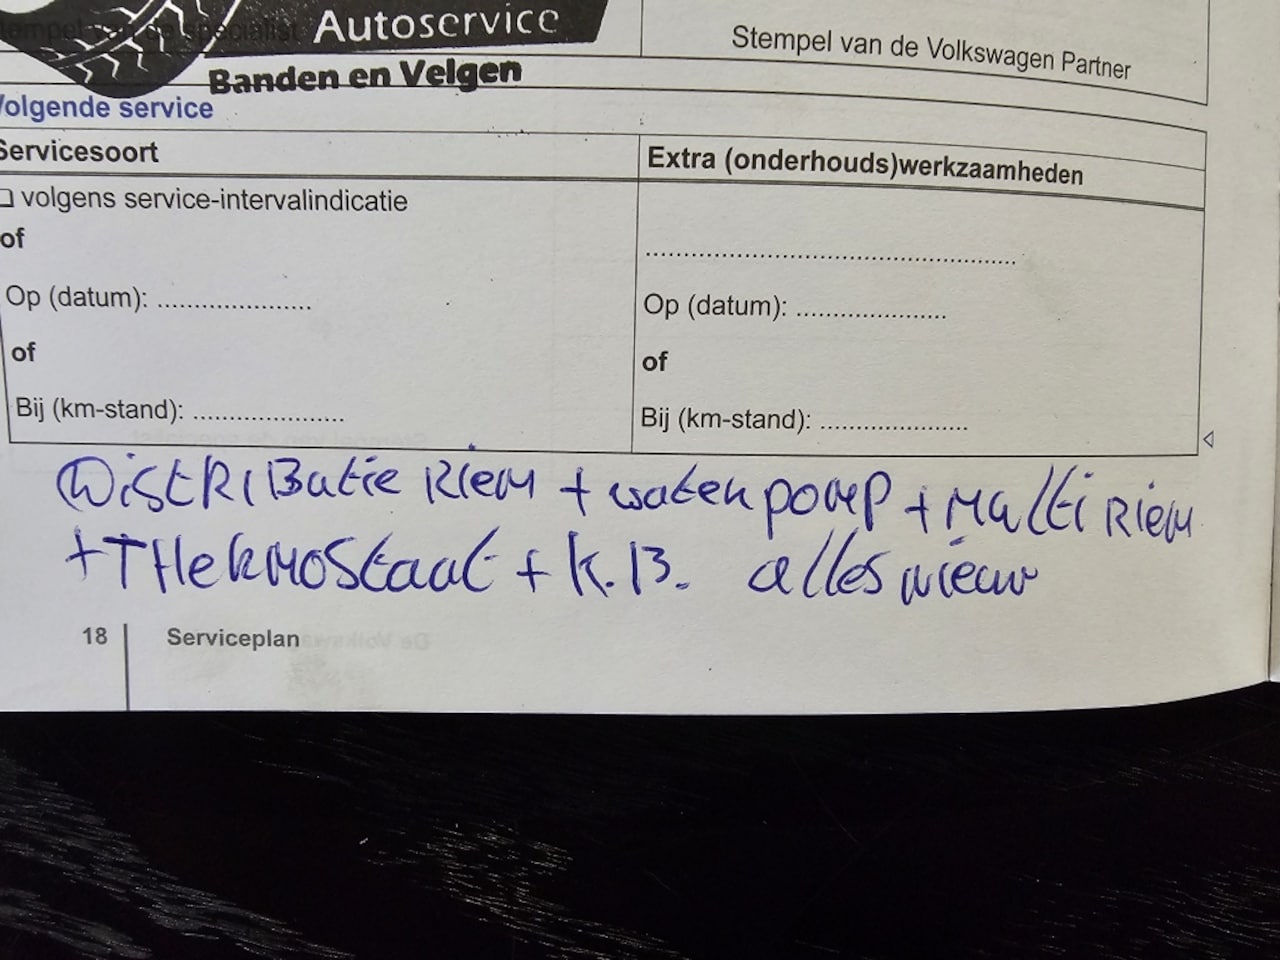 Stempel van de specialist
Autoservice
Banden en Velgen
Stempel van de Volkswagen Partner
Volgende service
Servicesoort
Extra (onderhouds)werkzaamheden
❑ volgens service-intervalindicatie
of
Op (datum): ......................
of
Bij (km-stand): ......................
.....................................................
Op (datum): ......................
of
Bij (km-stand): ......................
Distributie Riem + waterpomp + Multi Riem
+ THermostaat + K.B. alles nieuw
18 Serviceplan